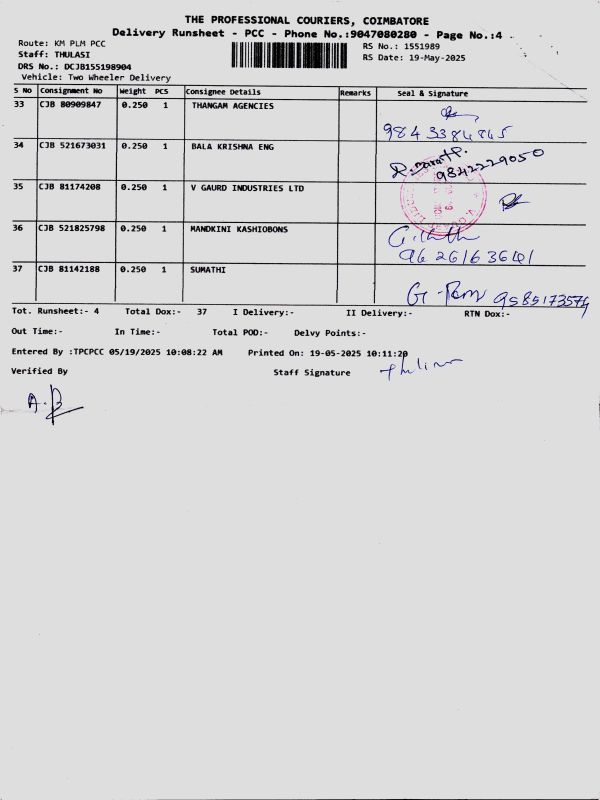 THE PROFESSIONAL COURIERS, COIMBATORE
Delivery Runsheet - PCC - Phone No.:9047080280 - Page No.:4
Route: KM PLM PCC
RS No.: 1551989
Staff: THULASI
RS Date: 19-May-2025
DRS No.: DCJB155198904
Vehicle: Two Wheeler Delivery
S No Consignment No Weight PCS Consignee Details Remarks Seal & Signature
33 CJB 80909847 0.250 1 THANGAM AGENCIES
9843384845
34 CJB 521673031 0.250 1 BALA KRISHNA ENG
9842229050
35 CJB 81174208 0.250 1 V GAURD INDUSTRIES LTD
36 CJB 521825798 0.250 1 MANDKINI KASHIOBONS
9626163641
37 CJB 81142188 0.250 1 SUMATHI
9585173574
Tot. Runsheet:- 4 Total Dox:- 37 I Delivery:- II Delivery:- RTN Dox:-
Out Time:- In Time:- Total POD:- Delvy Points:-
Entered By :TPCPCC 05/19/2025 10:08:22 AM Printed On: 19-05-2025 10:11:20
Verified By Staff Signature